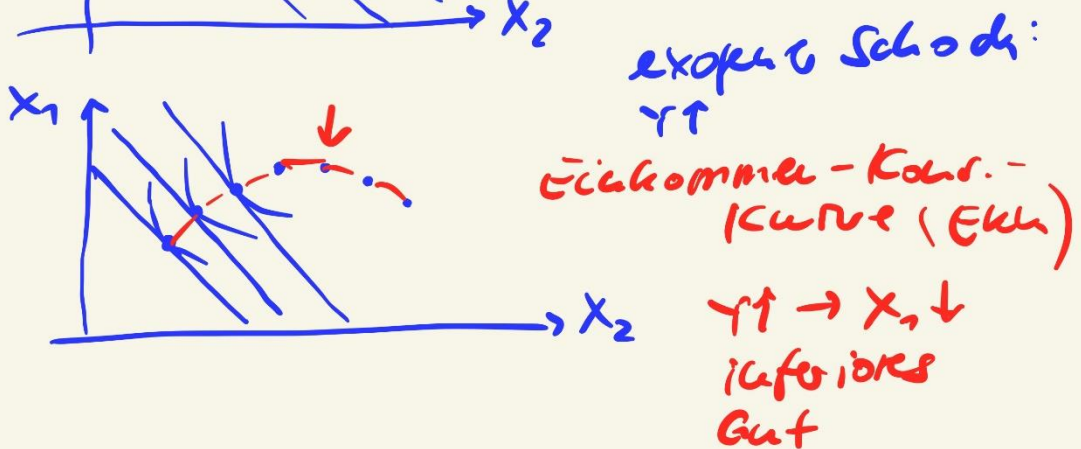 X₂
exogener Schock:
Y↑
X₁
Einkommen-Kons.-
Kurve (EKK)
X₂
Y↑ → X₁ ↓
inferiores
Gut